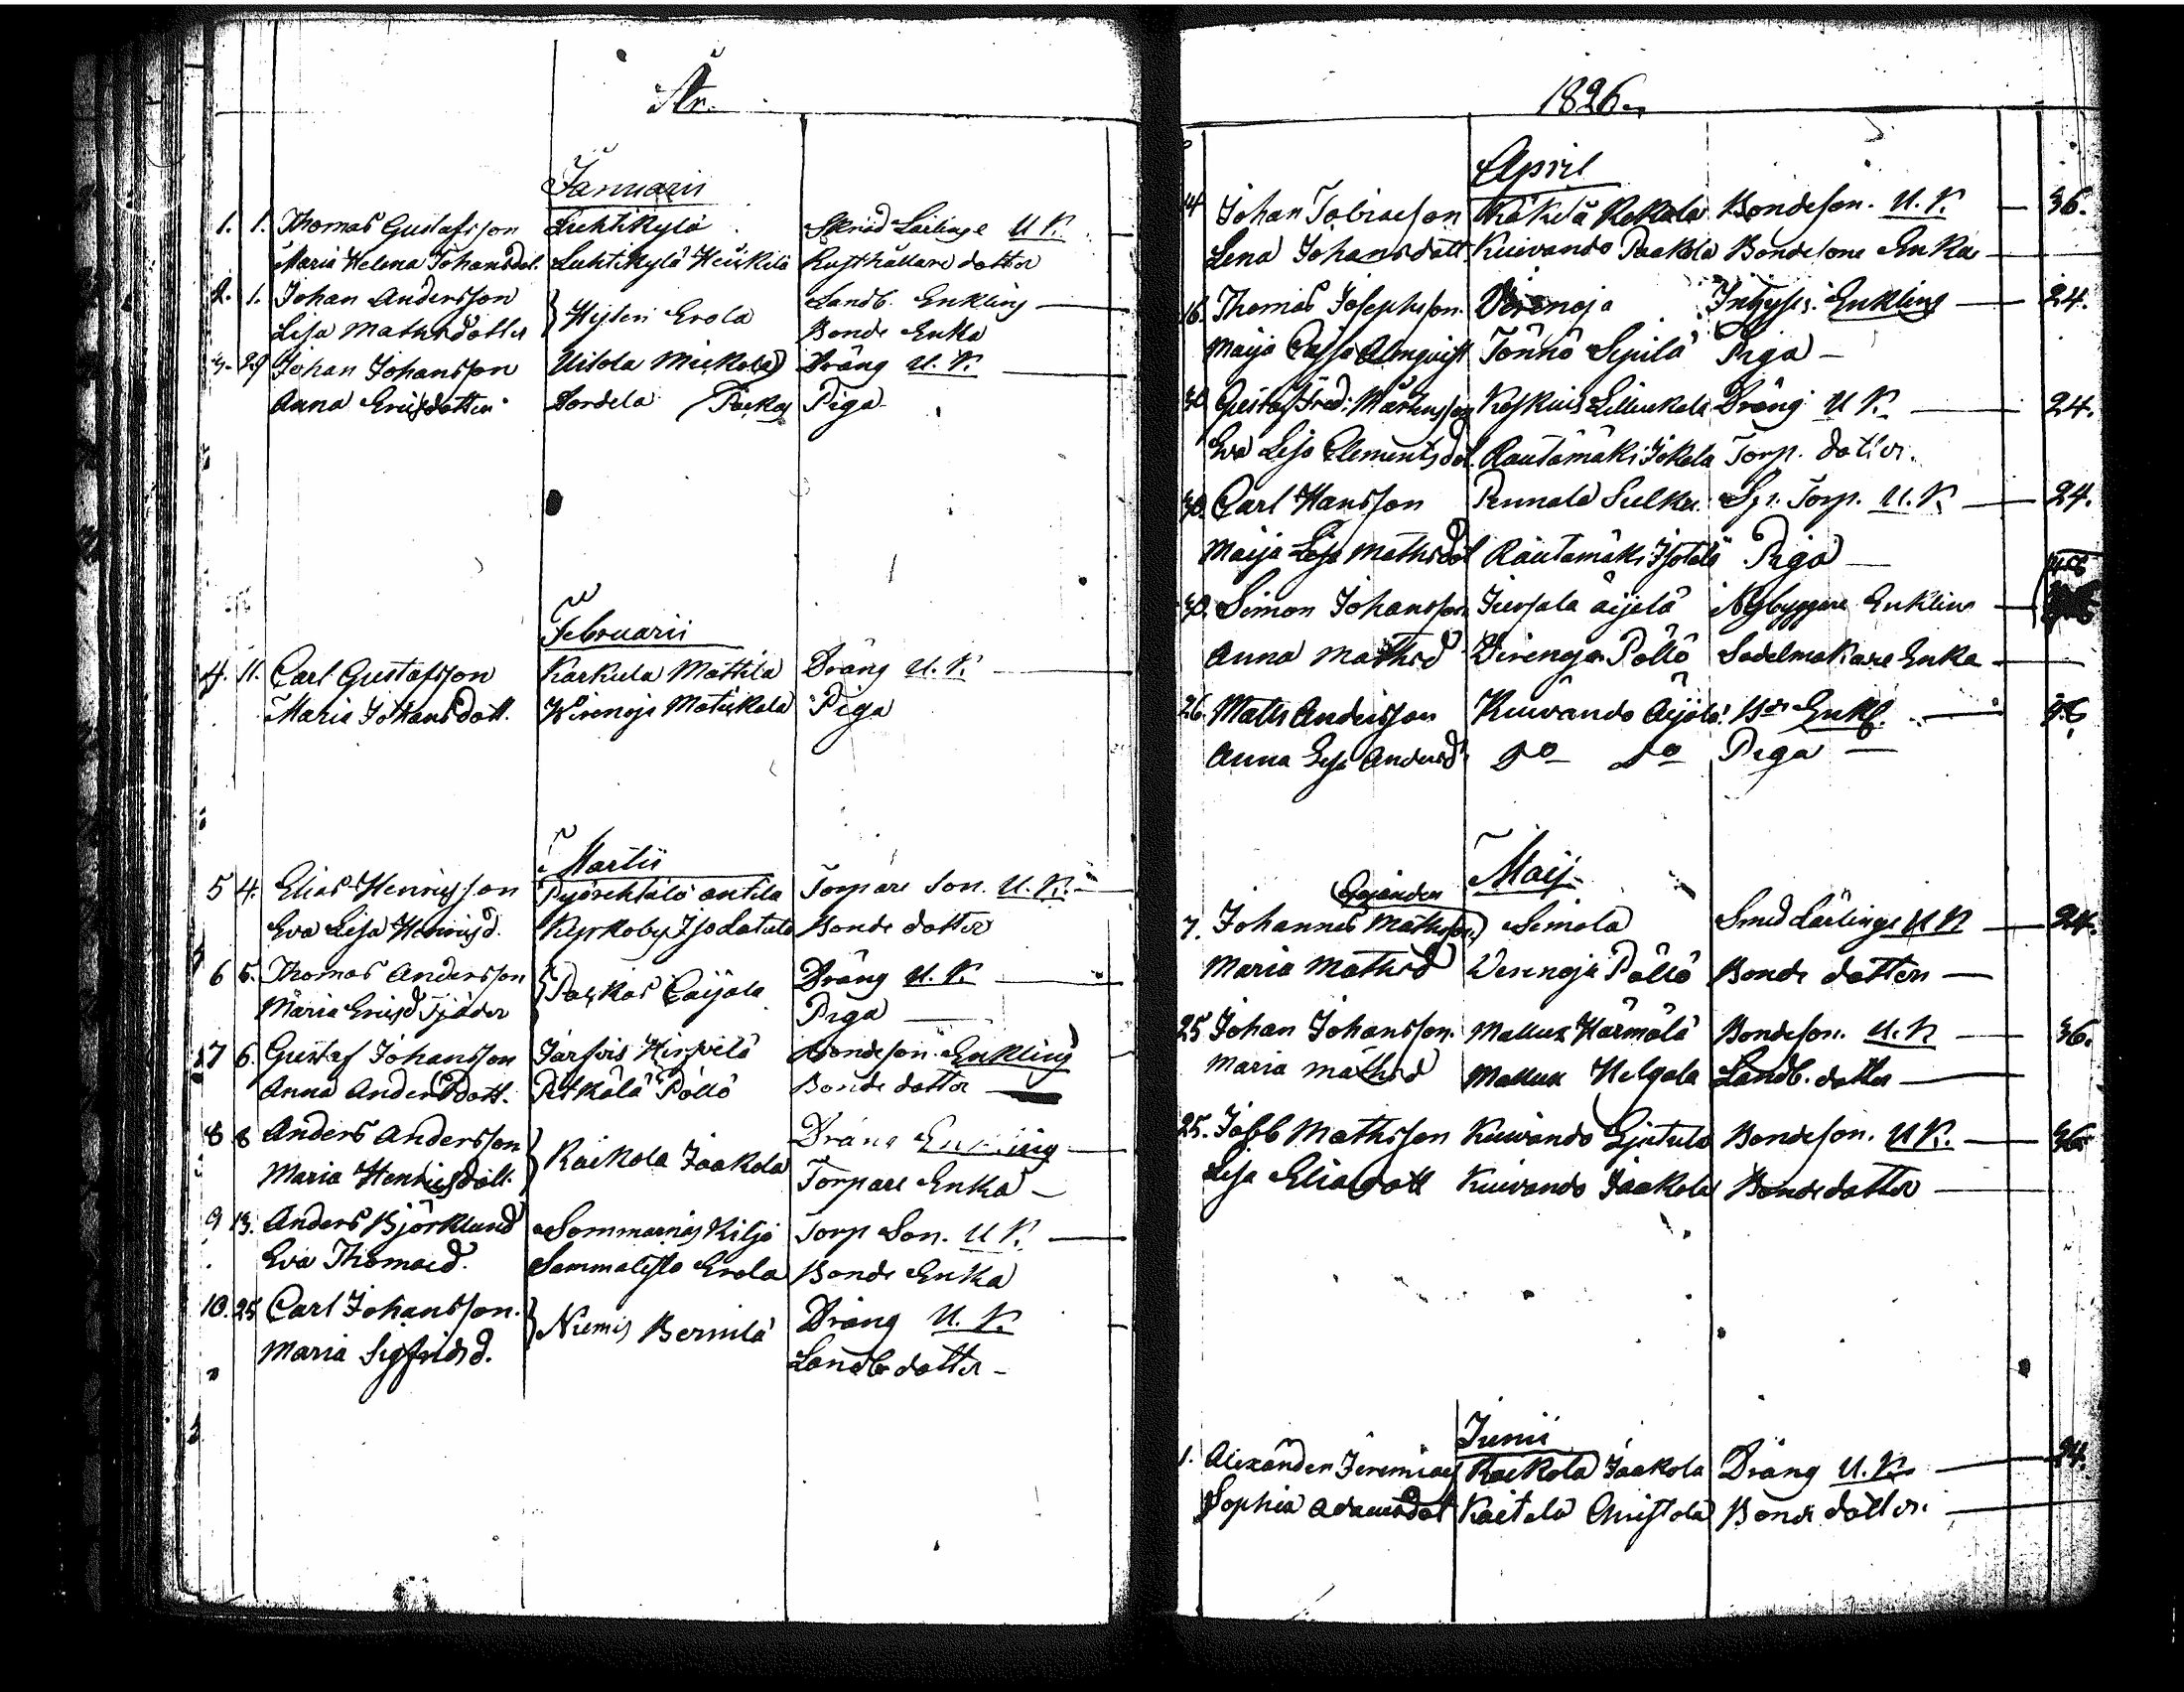 År
Januarii
1. 1. Thomas Gustafsson Luhtikylä Skräd Lärlinge U. K.
Maria Helena Johansdot. Luhtikylä Heikkilä Rusthållare dotter
2. 1. Johan Andersson Landb. Enkling
Lisa Mathsdotter } Erola Bonde Enka
3. 29 Johan Johansson Uitola Mickola Dräng U. K.
Anna Ericsdotter Dordela Piga
Februarii
4. 11. Carl Gustafsson Karkula Mattila Dräng U. K.
Maria Johansdott. Wirenoja Matickala Piga
Martii
5 4. Elias Henricsson Pyörehtälä Antila Torpare Son. U. K.
Eva Lisa Henricsd. Kyrkoby Isolatulo Bonde dotter
6 5. Thomas Andersson Dräng U. K.
Maria Ericsd Tjäder } Paskas Piga
7 6. Gustaf Johansson Järfvis Hirfvelä Bondeson. Enkling
Anna Andersdott. Pitkälä Pöllö Bonde dotter
8 8 Anders Andersson Dräng Enkling
Maria Henricsdott. } Raikola Jaakola Torpare Enka
9 13. Anders Björklund Sommarnäs Kiljo Torp Son. U K.
Eva Thomasd. Sammalisto Erola Bonde Enka
10. 25 Carl Johansson. Dräng U. K.
Maria Sigfridsd. } Niemis Bernilä Landb dotter
1826.
April
14 Johan Tobiaeson Käkelä Kokkala Bondeson. U. K. 36.
Lena Johansdott Kuivando Paakola Bondesons Enka
16. Thomas Josephsson. Virenoja Enkling 24.
Maija Cajsa Almqvist Tönnö Sepilä Piga
30 Gustaf Fred. Mårtensson Koskuis Dräng U K. 24.
Eva Lisa Clementsdot. Rautamäki Jokela Torp. dotter.
30. Carl Hansson Pennala Sulku Sp. Torp. U. K. 24.
Maija Lisa Mathsdot Rautamäki Isotalo Piga
30. Simon Johansson Jursala Äijälä Nybyggare Enkling
Anna Mathsd Virenoja Pöllö Sadelmakare Enka
26. Maths Andersson Kuivando Äijälä Enkl.
Anna Lisa Andersd do do Piga
Maij
7. Johannes Mathsson Simola Smed Lärlinge U K 24.
Maria Mathsd Virenoja Pöllö Bonde dotter
25 Johan Johansson. Mallux Härmälä Bondeson. U. K 36.
Maria Mathsd Mallux Helgala Landb. dotter
25. Jacob Mathsson Kuivando Ljutula Bondeson. U K. 36
Lisa Eliaedott Kuivando Jaakola Bondedotter
Junii
1. Alexander Jeremiaes Raikola Jaakola Dräng U. K. 24.
Sophia Adamsdot Kaitala Christola Bonde dotter.